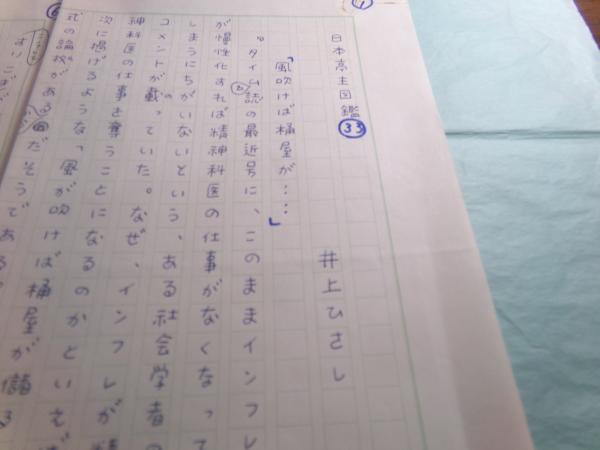 日本亭主図鑑 33
井上ひさし
「風吹けば桶屋が……」
『タイム誌』の最近号に、このままインフレ
が慢性化すれば精神科医の仕事がなくなって
しまうにちがいないという、ある社会学者の
コメントが載っていた。なぜ、インフレが精
神科医の仕事を奪うことになるのかといえば
次に掲げるような、風が吹けば桶屋が儲る
式の論枚がある
だそうである。